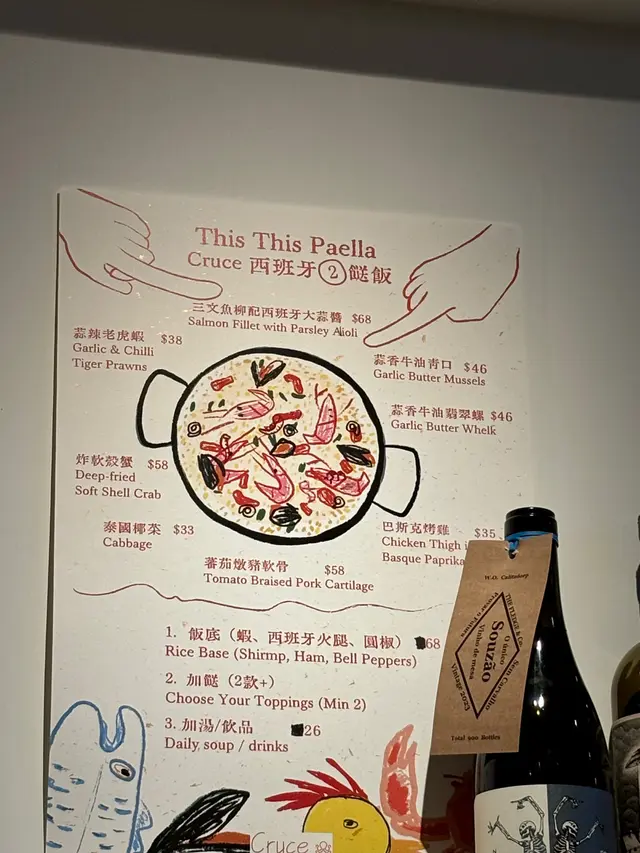 This This Paella
Cruce 西班牙②餸飯
三文魚柳配西班牙大蒜醬 $68
Salmon Fillet with Parsley Alioli
蒜辣老虎蝦 $38
Garlic & Chilli
Tiger Prawns
蒜香牛油青口 $46
Garlic Butter Mussels
蒜香牛油翡翠螺 $46
Garlic Butter Whelk
炸軟殼蟹 $58
Deep-fried
Soft Shell Crab
泰國椰菜 $33
Cabbage
巴斯克烤雞 $35
Chicken Thigh
Basque Paprika
蕃茄燉豬軟骨 $58
Tomato Braised Pork Cartilage
1. 飯底（蝦、西班牙火腿、圓椒） 68
Rice Base (Shirmp, Ham, Bell Peppers)
2. 加餸（2款+）
Choose Your Toppings (Min 2)
3. 加湯/飲品 26
Daily soup / drinks
Cruce
W.O. Calitzdorp
THE FLEDGE & Co.
O único
Souzão
Vinho de mesa
Sem Carvalho
Vintage 2023
Total 900 Bottles